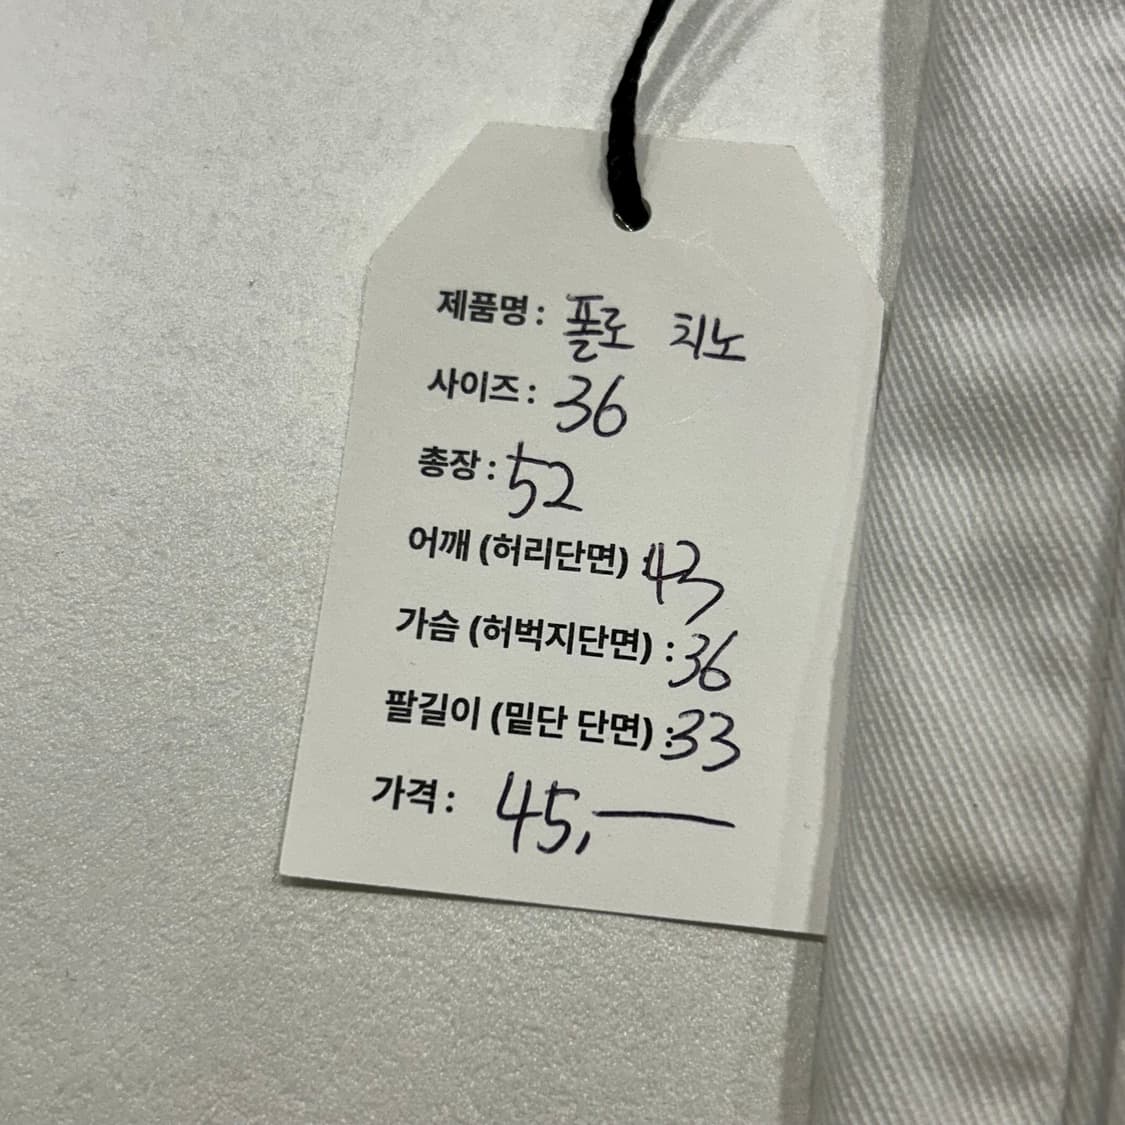 제품명 : 폴로 치노
사이즈 : 36
총장 : 52
어깨 (허리단면) : 43
가슴 (허벅지단면) : 36
팔길이 (밑단 단면) : 33
가격 : 45,—